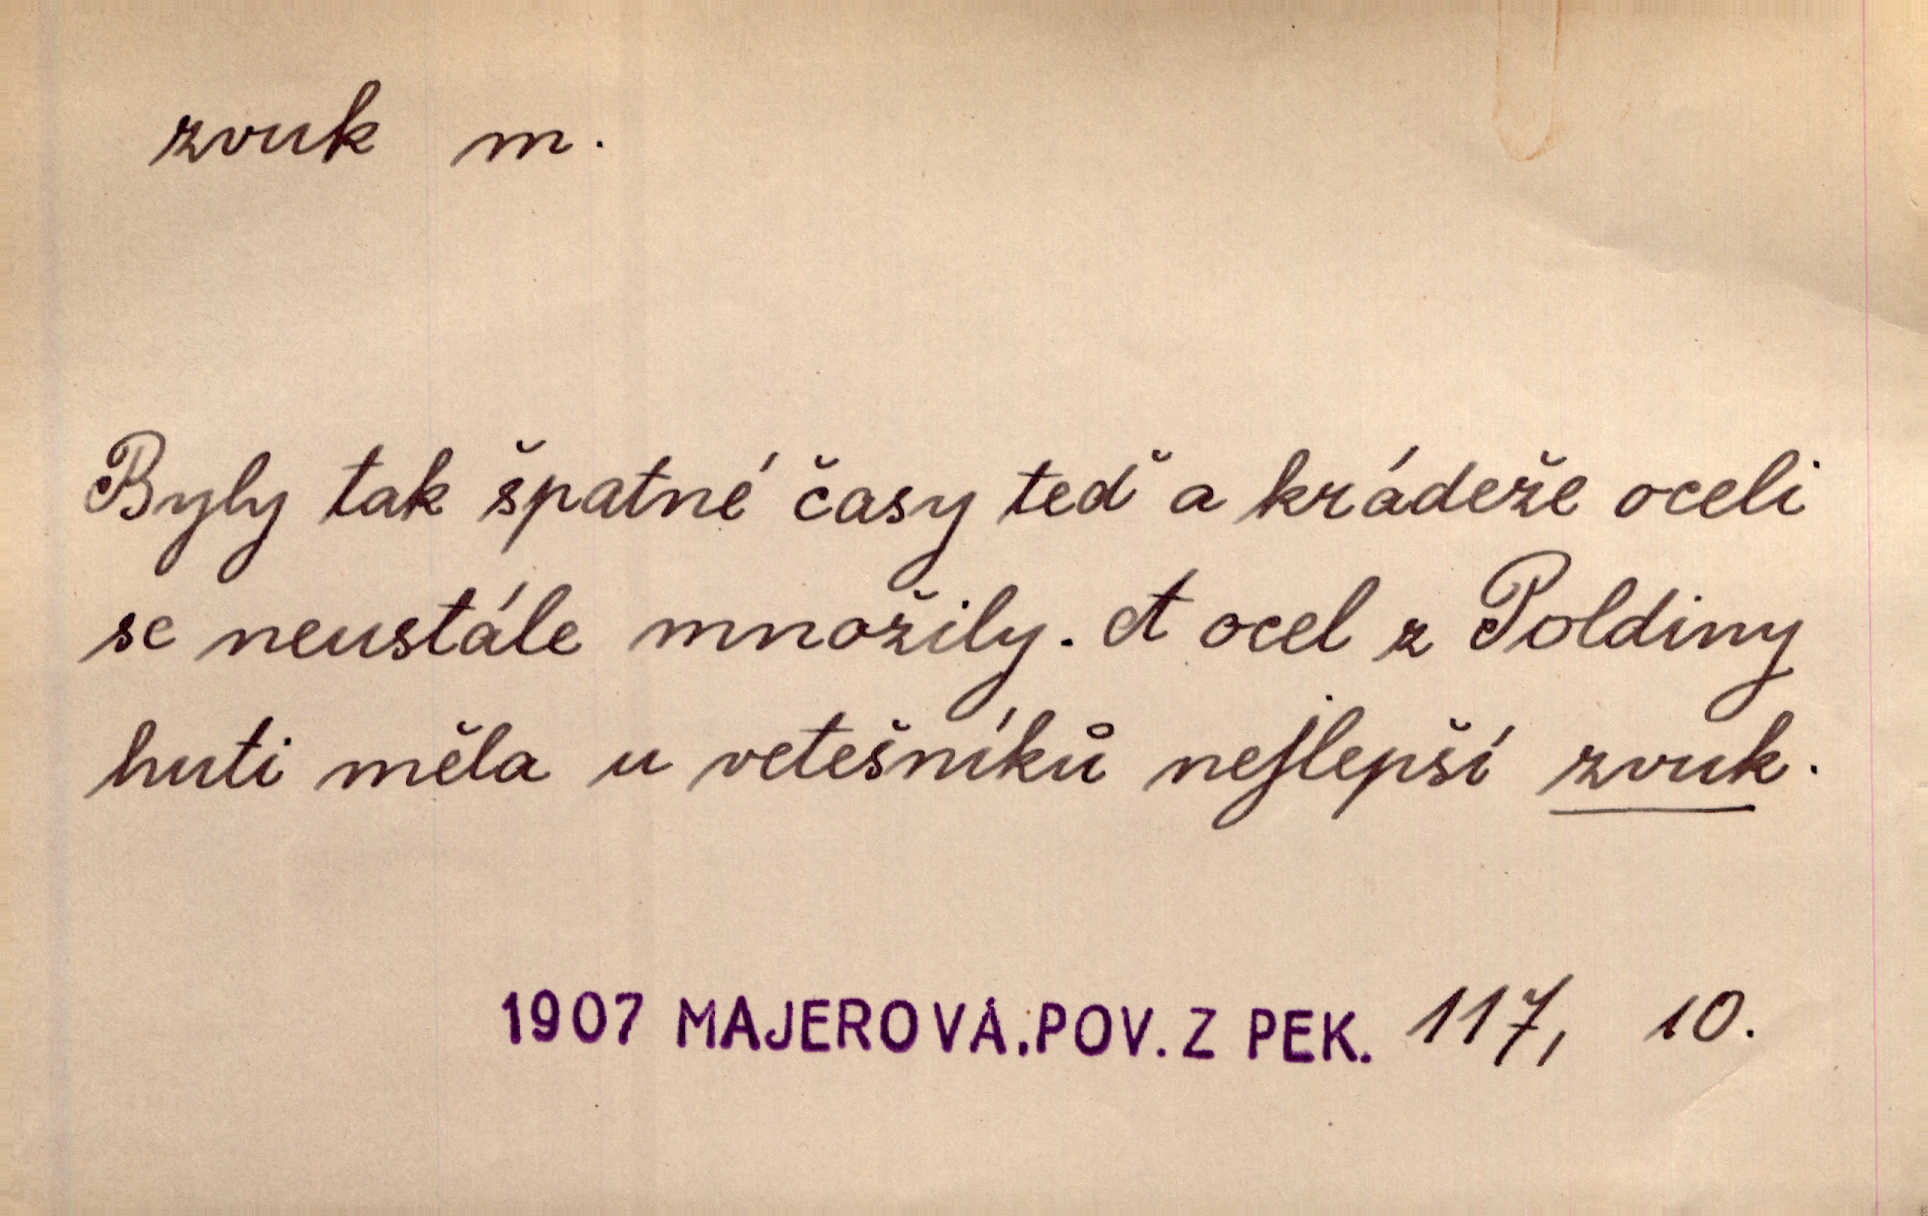 zvuk m.
Byly tak špatné časy teď a krádeže oceli
se neustále množily. A ocel z Poldiny
huti měla u vetešníků nejlepší zvuk.
1907 MAJEROVÁ.POV.Z PEK. 117, 10.